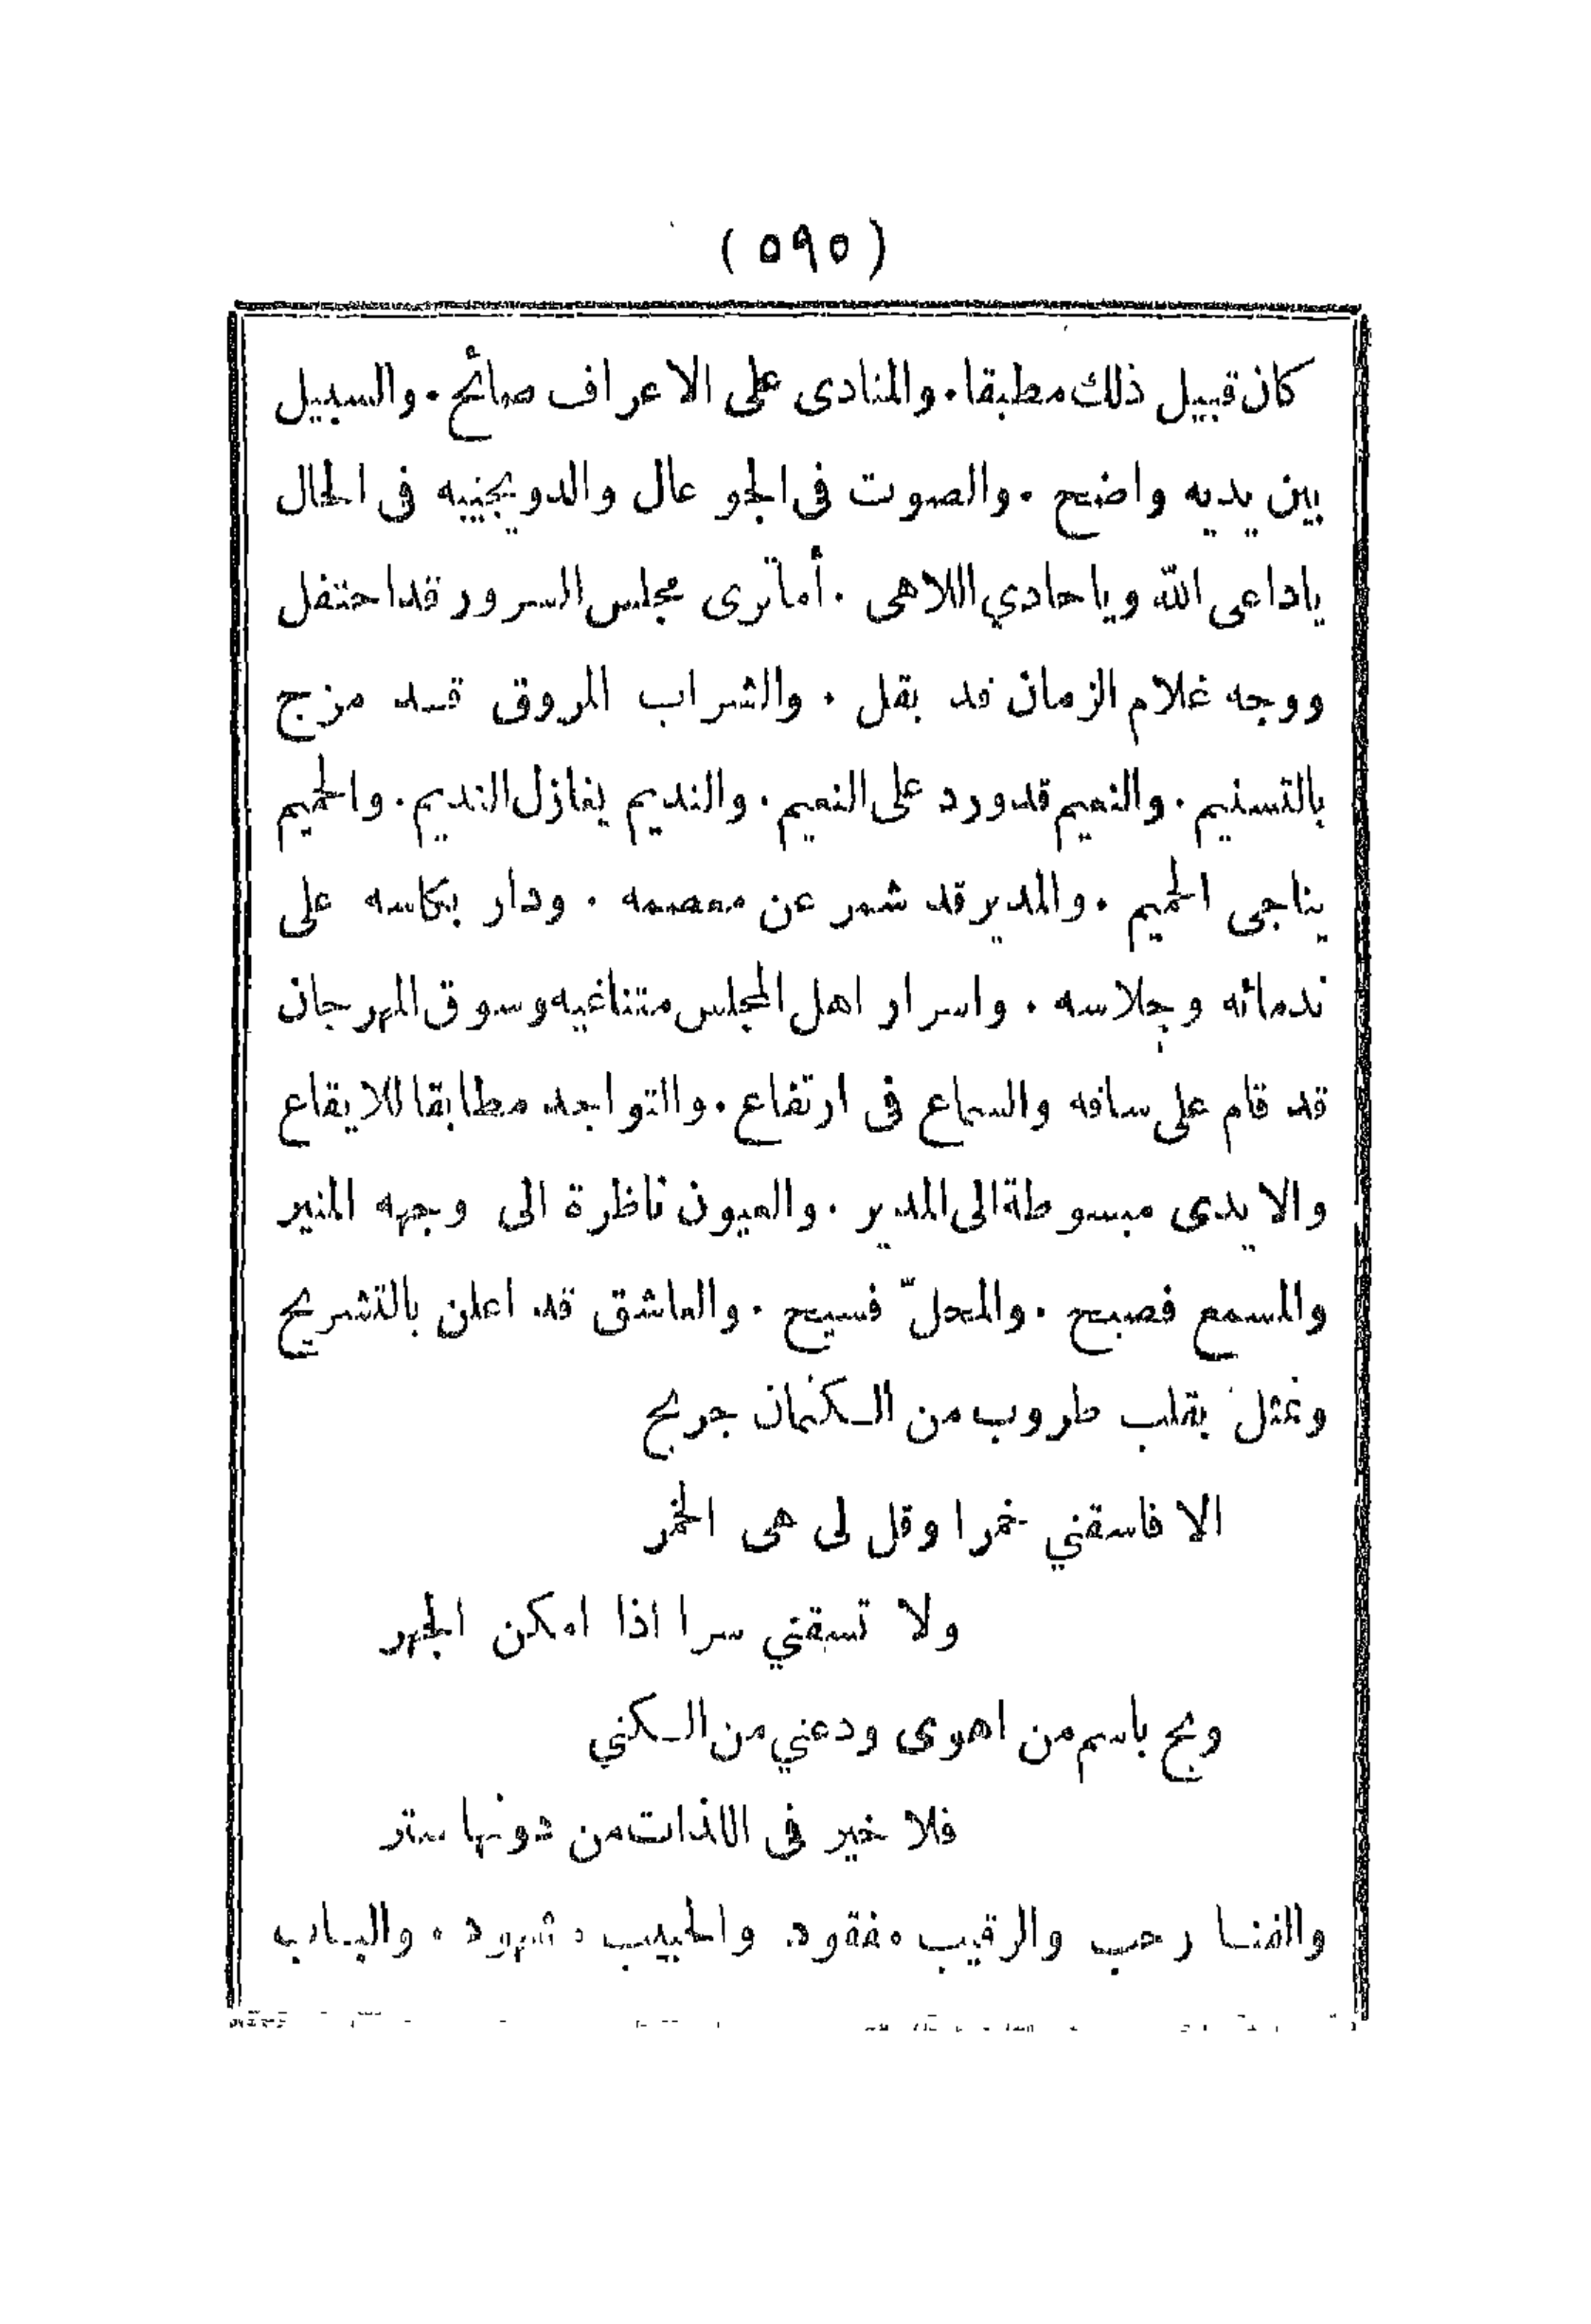 (٥٩٥)
كان قبيل ذلك مطبقا . والمنادى على الاعراف صائح . والسبيل
بين يديه واضح . والصوت فى الجو عال والدو يجيبه فى الحال
ياداعى الله وياحادي اللاهى . أما ترى مجلس السرور قداحتفل
ووجه غلام الزمان قد بقل . والشراب المروق قد مزج
بالتسنيم . والنعيم قدورد على النعيم . والنديم يغازل النديم . والحميم
يناجى الحميم . والمدير قد شمر عن معصمه . ودار بكاسه على
ندمائه وجلاسه . واسرار اهل المجلس متناغيه وسوق المهرجان
قد قام على ساقه والسماع فى ارتفاع . والتواجد مطابقا للايقاع
والايدى مبسوطة الى المدير . والعيون ناظرة الى وجهه المنير
والمسمع فصيح . والمحلّ فسيح . والعاشق قد اعلن بالتشريح
وتمثل بقلب طروب من الكتمان جريح
الا فاسقني خمرا وقل لى هى الخمر
ولا تسقني سرا اذا امكن الجهر
وبح باسم من اهوى ودعني من الكني
فلا خير فى اللذات من دونها ستر
والفنا رحب والرقيب مفقود والحبيب مشهود . والباب